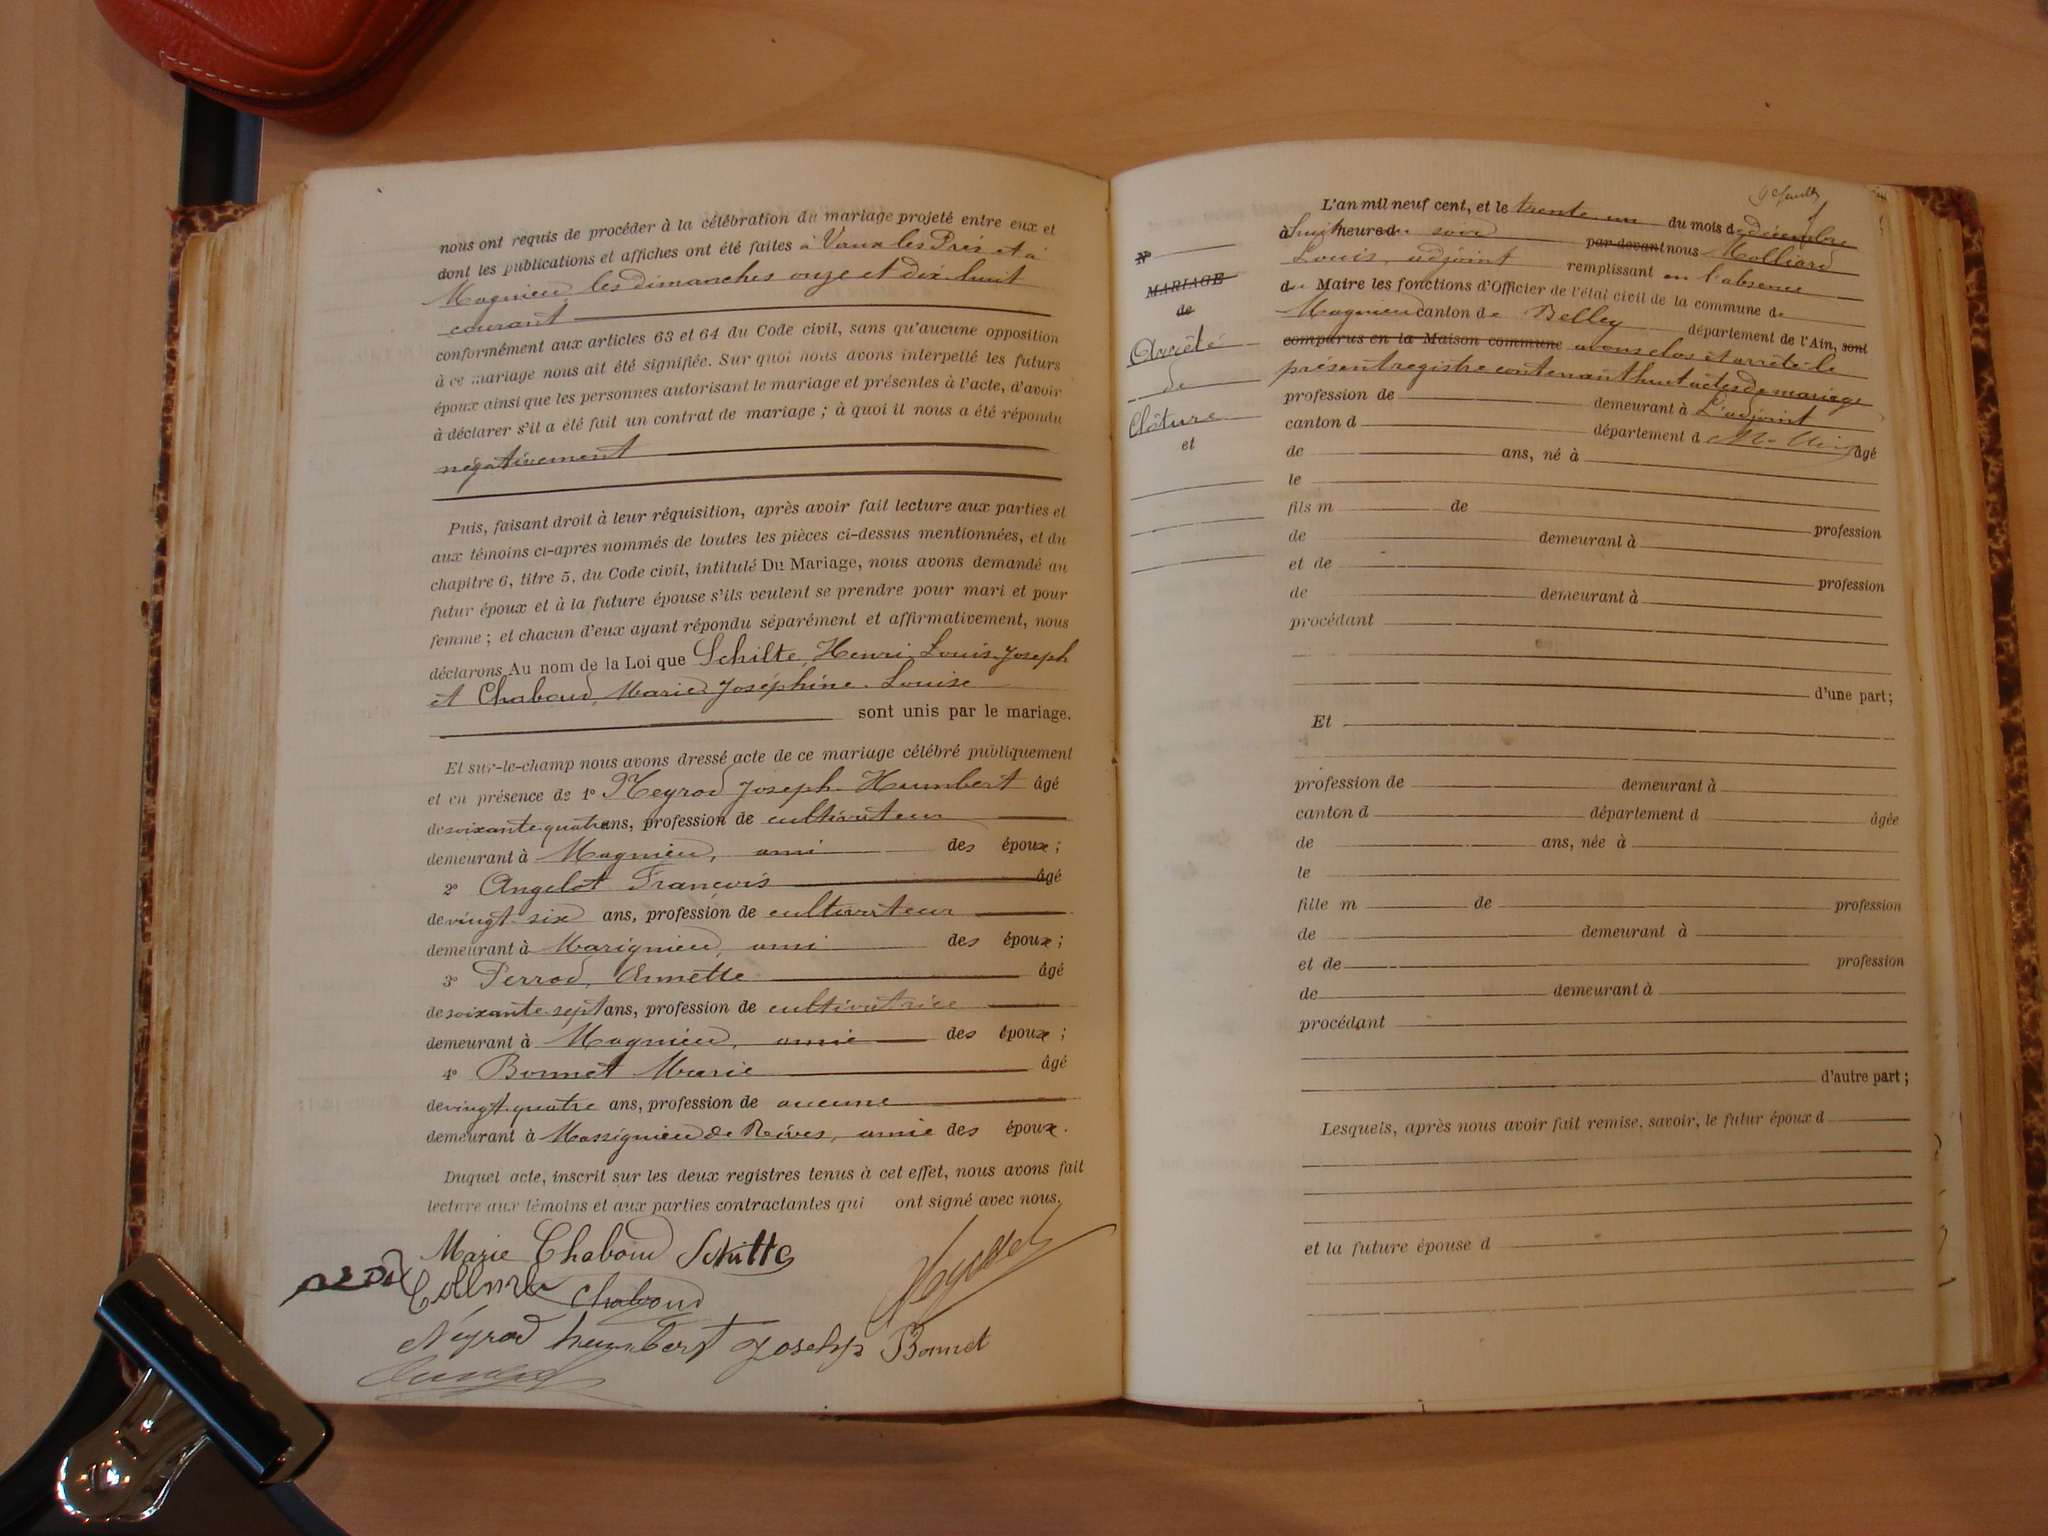 nous ont requis de procéder à la célébration du mariage projeté entre eux et
dont les publications et affiches ont été faites à Vaux les Prés et à
Magnieu les dimanches onze et dix huit
courant
conformément aux articles 63 et 64 du Code civil, sans qu'aucune opposition
à ce mariage nous ait été signifiée. Sur quoi nous avons interpellé les futurs
époux ainsi que les personnes autorisant le mariage et présentes à l'acte, d'avoir
à déclarer s'il a été fait un contrat de mariage ; à quoi il nous a été répondu
négativement
Puis, faisant droit à leur réquisition, après avoir fait lecture aux parties et
aux témoins ci-après nommés de toutes les pièces ci-dessus mentionnées, et du
chapitre 6, titre 5, du Code civil, intitulé Du Mariage, nous avons demandé au
futur époux et à la future épouse s'ils veulent se prendre pour mari et pour
femme ; et chacun d'eux ayant répondu séparément et affirmativement, nous
déclarons Au nom de la Loi que Schilte, Henri Louis Joseph
et Chaboud, Marie Joséphine Louise
sont unis par le mariage.
Et sur-le-champ nous avons dressé acte de ce mariage célébré publiquement
et en présence de 1° Neyrod Joseph Humbert âgé
de soixante quatre ans, profession de cultivateur
demeurant à Magnieu, ami des époux ;
2° Angelot François âgé
de vingt six ans, profession de cultivateur
demeurant à Marignieu, ami des époux ;
3° Perrod, Annette âgé
de soixante sept ans, profession de cultivatrice
demeurant à Magnieu, amie des époux ;
4° Bonnet Marie âgé
de vingt quatre ans, profession de aucune
demeurant à Massignieu de Rives, amie des époux.
Duquel acte, inscrit sur les deux registres tenus à cet effet, nous avons fait
lecture aux témoins et aux parties contractantes qui ont signé avec nous.
Marie Chaboud Schilte
Chaboud
Neyrod humbert Joseph Bonnet
L'an mil neuf cent, et le trente un du mois de décembre
à huit heures du soir par devant nous Molliard
Louis, adjoint remplissant en l'absence
du Maire les fonctions d'Officier de l'état civil de la commune de
Magnieu canton de Belley département de l'Ain, sont
comparus en la Maison commune avons clos et arrêté le
présent registre contenant huit actes de mariage
N°
MARIAGE
de
Arrêté
de
Clôture
et
profession de demeurant à L'adjoint
canton d département d âgé
de ans, né à
le
fils m de
profession
de demeurant à
et de
profession
de demeurant à
procédant
d'une part ;
Et
profession de demeurant à
canton d département d âgée
de ans, née à
le
fille m de profession
de demeurant à
et de profession
de demeurant à
procédant
d'autre part ;
Lesquels, après nous avoir fait remise, savoir, le futur époux d
et la future épouse d